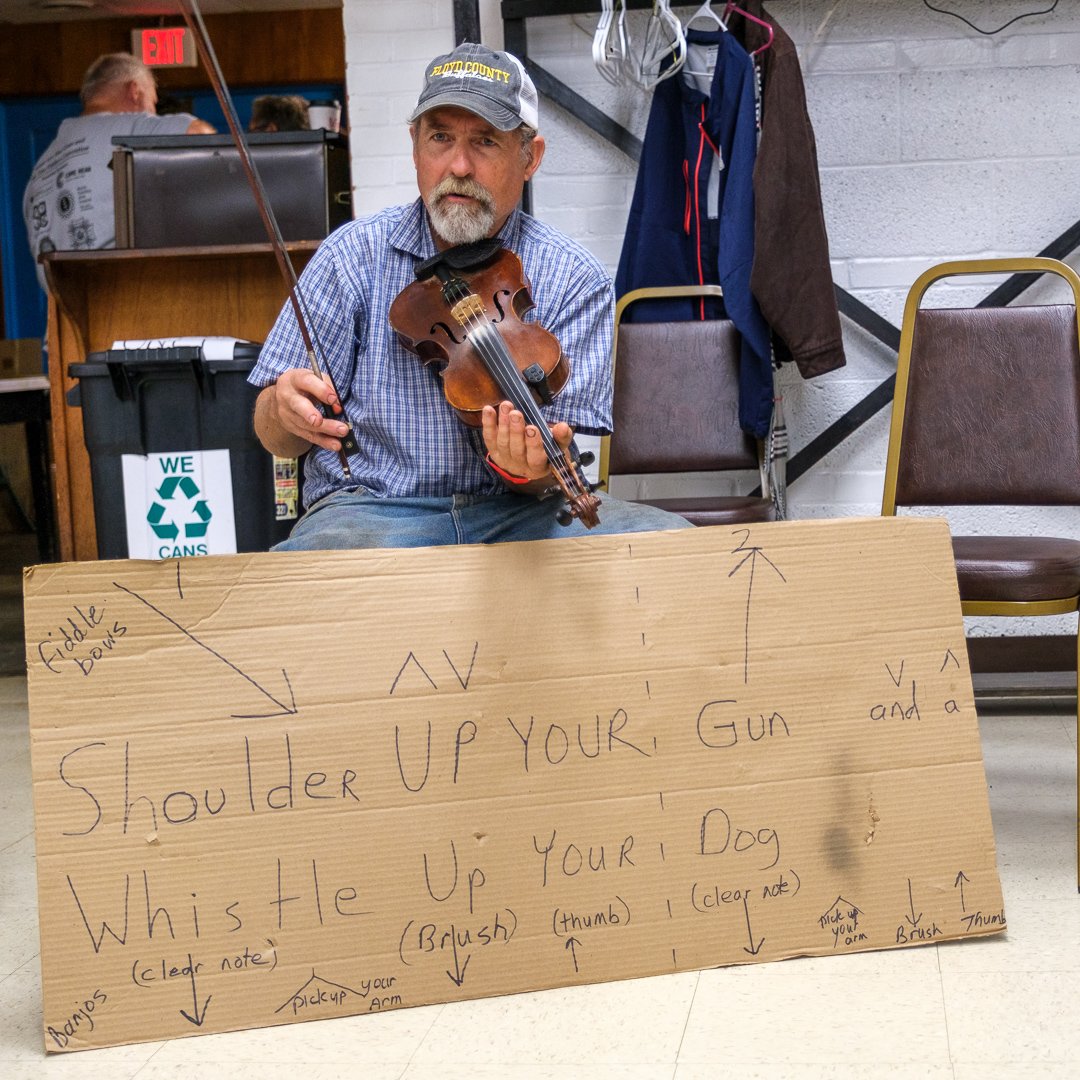 EXIT
FLOYD COUNTY
WE
CANS
Fiddle
bows
1
2
Shoulder UP YOUR Gun and a
Whistle Up YOUR Dog
(clear note) (Brush) (thumb) (clear note) pick up your arm Brush Thumb
pick up your Arm
Banjos